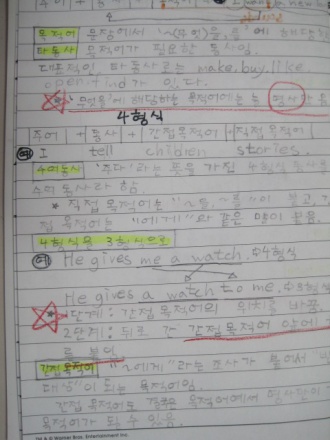 목적어 문장에서 '~(무엇)을,를'에 해당
타동사 목적어가 필요한 동사임.
대표적인 타동사로는 make, buy, like
open, find 가 있다.
'무엇을'에 해당하는 목적어에는 명사
4형식
주어 + 동사 + 간접목적어 + 직접목적어
예 I tell children stories.
수여동사 '주다'라는 뜻을 가진 4형식 동사
수여동사라 함.
* 직접목적어는 "~을, ~를"이 붙고, 간
접목적어는 "~에게"와 같은 말이 붙음.
4형식을 3형식으로
예 He gives me a watch. 4형식
He gives a watch to me. 3형식
* 1단계: 간접목적어의 위치를 바꿈.
2단계: 뒤로 간 간접목적어 앞에
를 붙임
간접목적어 "~에게"라는 조사가 붙어서
대상"이 되는 목적어임.
간접목적어도 목적어에서 명사만이
목적어가 될 수 있음.
Warner Bros. Entertainment Inc.